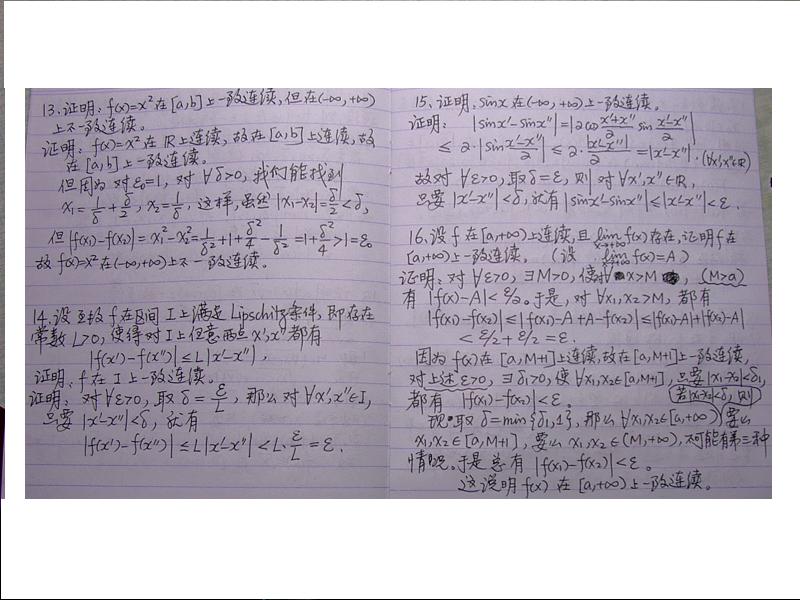 13、证明:f(x)=x²在[a,b]上一致连续,但在(-∞,+∞)
上不一致连续。
证明:f(x)=x²在R上连续,故在[a,b]上连续,故
在[a,b]上一致连续。
但因为对ε₀=1,对∀δ>0,我们能找到
x₁=1/δ+δ/2,x₂=1/δ,这样,虽然|x₁-x₂|=δ/2<δ,
但|f(x₁)-f(x₂)|=x₁²-x₂²=1/δ²+1+δ²/4-1/δ²=1+δ²/4>1=ε₀
故f(x)=x²在(-∞,+∞)上不一致连续。
14、设函数f在区间I上满足Lipschitz条件,即存在
常数L>0,使得对I上任意两点x′,x″都有
|f(x′)-f(x″)|≤L|x′-x″|,
证明:f在I上一致连续。
证明:对∀ε>0,取δ=ε/L,那么对∀x′,x″∈I,
只要|x′-x″|<δ,就有
|f(x′)-f(x″)|≤L|x′-x″|<L·ε/L=ε.
15、证明:sinx在(-∞,+∞)上一致连续。
证明:|sinx′-sinx″|=|2cos (x′+x″)/2 sin (x′-x″)/2|
≤2·|sin (x′-x″)/2|≤2·|x′-x″|/2=|x′-x″|.(∀x′,x″∈R)
故对∀ε>0,取δ=ε,则对∀x′,x″∈R,
只要|x′-x″|<δ,就有|sinx′-sinx″|≤|x′-x″|<ε.
16、设f在[a,+∞)上连续,且lim x→+∞ f(x)存在,证明f在
[a,+∞)上一致连续。(设 lim x→+∞ f(x)=A)
证明:对∀ε>0,∃M>0,使对∀x>M,(M>a)
有|f(x)-A|<ε/2。于是,对∀x₁,x₂>M,都有
|f(x₁)-f(x₂)|≤|f(x₁)-A+A-f(x₂)|≤|f(x₁)-A|+|f(x₂)-A|
<ε/2+ε/2=ε.
因为f(x)在[a,M+1]上连续,故在[a,M+1]上一致连续,
对上述ε>0,∃δ₁>0,使∀x₁,x₂∈[a,M+1],只要|x₁-x₂|<δ₁,
都有|f(x₁)-f(x₂)|<ε。 若|x₁-x₂|<δ,则
现取δ=min{δ₁,1},那么∀x₁,x₂∈[a,+∞)要么
x₁,x₂∈[a,M+1],要么x₁,x₂∈(M,+∞),不可能有第三种
情况。于是总有|f(x₁)-f(x₂)|<ε。
这说明f(x)在[a,+∞)上一致连续。